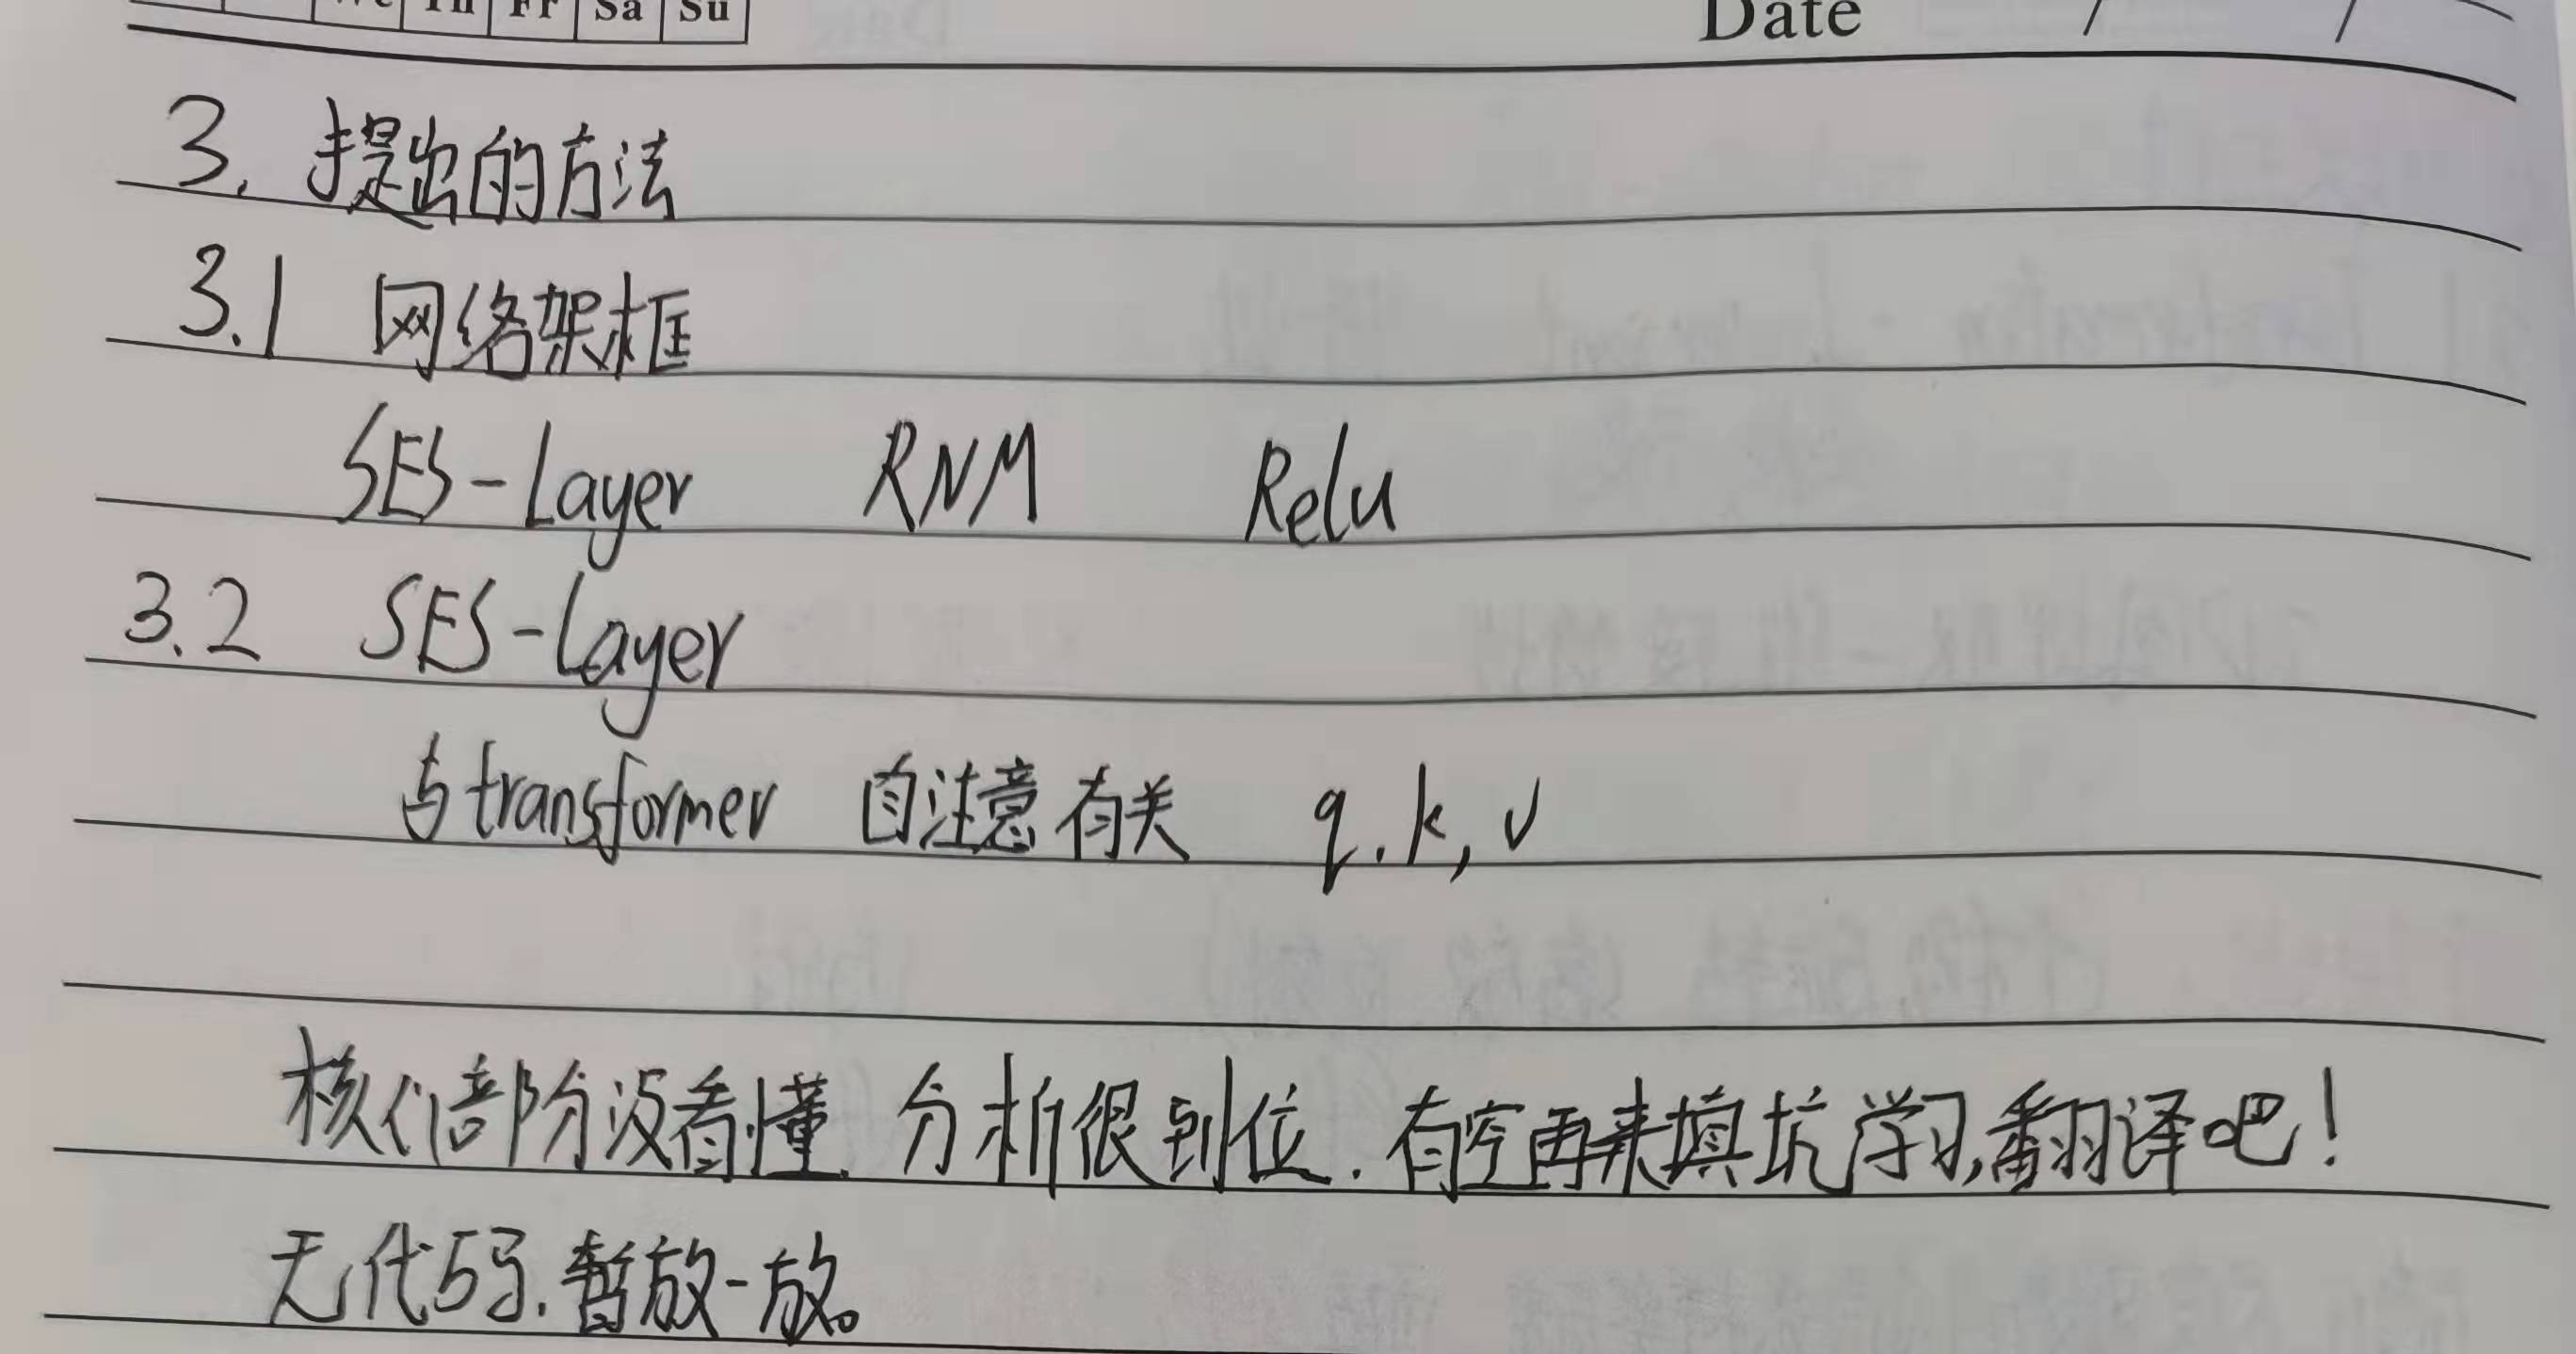 We Th Fr Sa Su Date / /
3. 提出的方法
3.1 网络架框
SES-Layer RNM Relu
3.2 SES-Layer
与transformer 自注意有关 q.k,v
核心部分没看懂.分析很到位.有空再来填坑学习,翻译吧!
无代码.暂放一放。